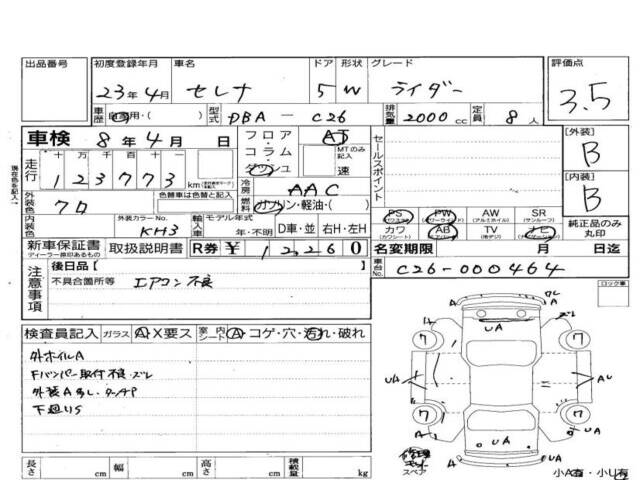 出品番号 初度登録年月 車名 ドア 形状 グレード 評価点
23年4月 セレナ 5 W ライダー 3.5
車歴 自家用・( ) 型式 DBA-C26 排気量 2000cc 定員 8人
車検 8年4月 日 フロア・コラム・ダッシュ AT MTのみ記入 速 セールスポイント [外装] B
現在色を記入→
走行 十 万 千 百 十 一
123773 km 冷房 AAC [内装] B
外装色 クロ 色替車は色替と記入 燃料 ガソリン・軽油・( )
内装色 外装カラーNo. KH3 輸入車 モデル年式 年・不明 D車・並 右H・左H
PS (パワステ) PW (パワーウインド) AW (アルミホイル) SR (サンルーフ)
カワ (カワシート) AB (エアバック) TV (地デジ) ナビ 純正品のみ丸印
新車保証書 ディーラー捺印あるもの 取扱説明書 R券 ¥12260 名変期限 月 日迄
注意事項 後日品[ ] 車台No. C26-000464
不具合箇所等 エアコン不良 ロック車
検査員記入 ガラス A・X要ス 室内 シート A・コゲ・穴・汚れ・破れ
外ホイルA
Fバンパー取付不良・ズレ
下廻りS
A ル A
UA ズレ
7 7
UA AU
7 7
A UA A
A A
修理キット
スペア 小A有・小U有
長さ cm 幅 cm 高さ cm 積載量 kg